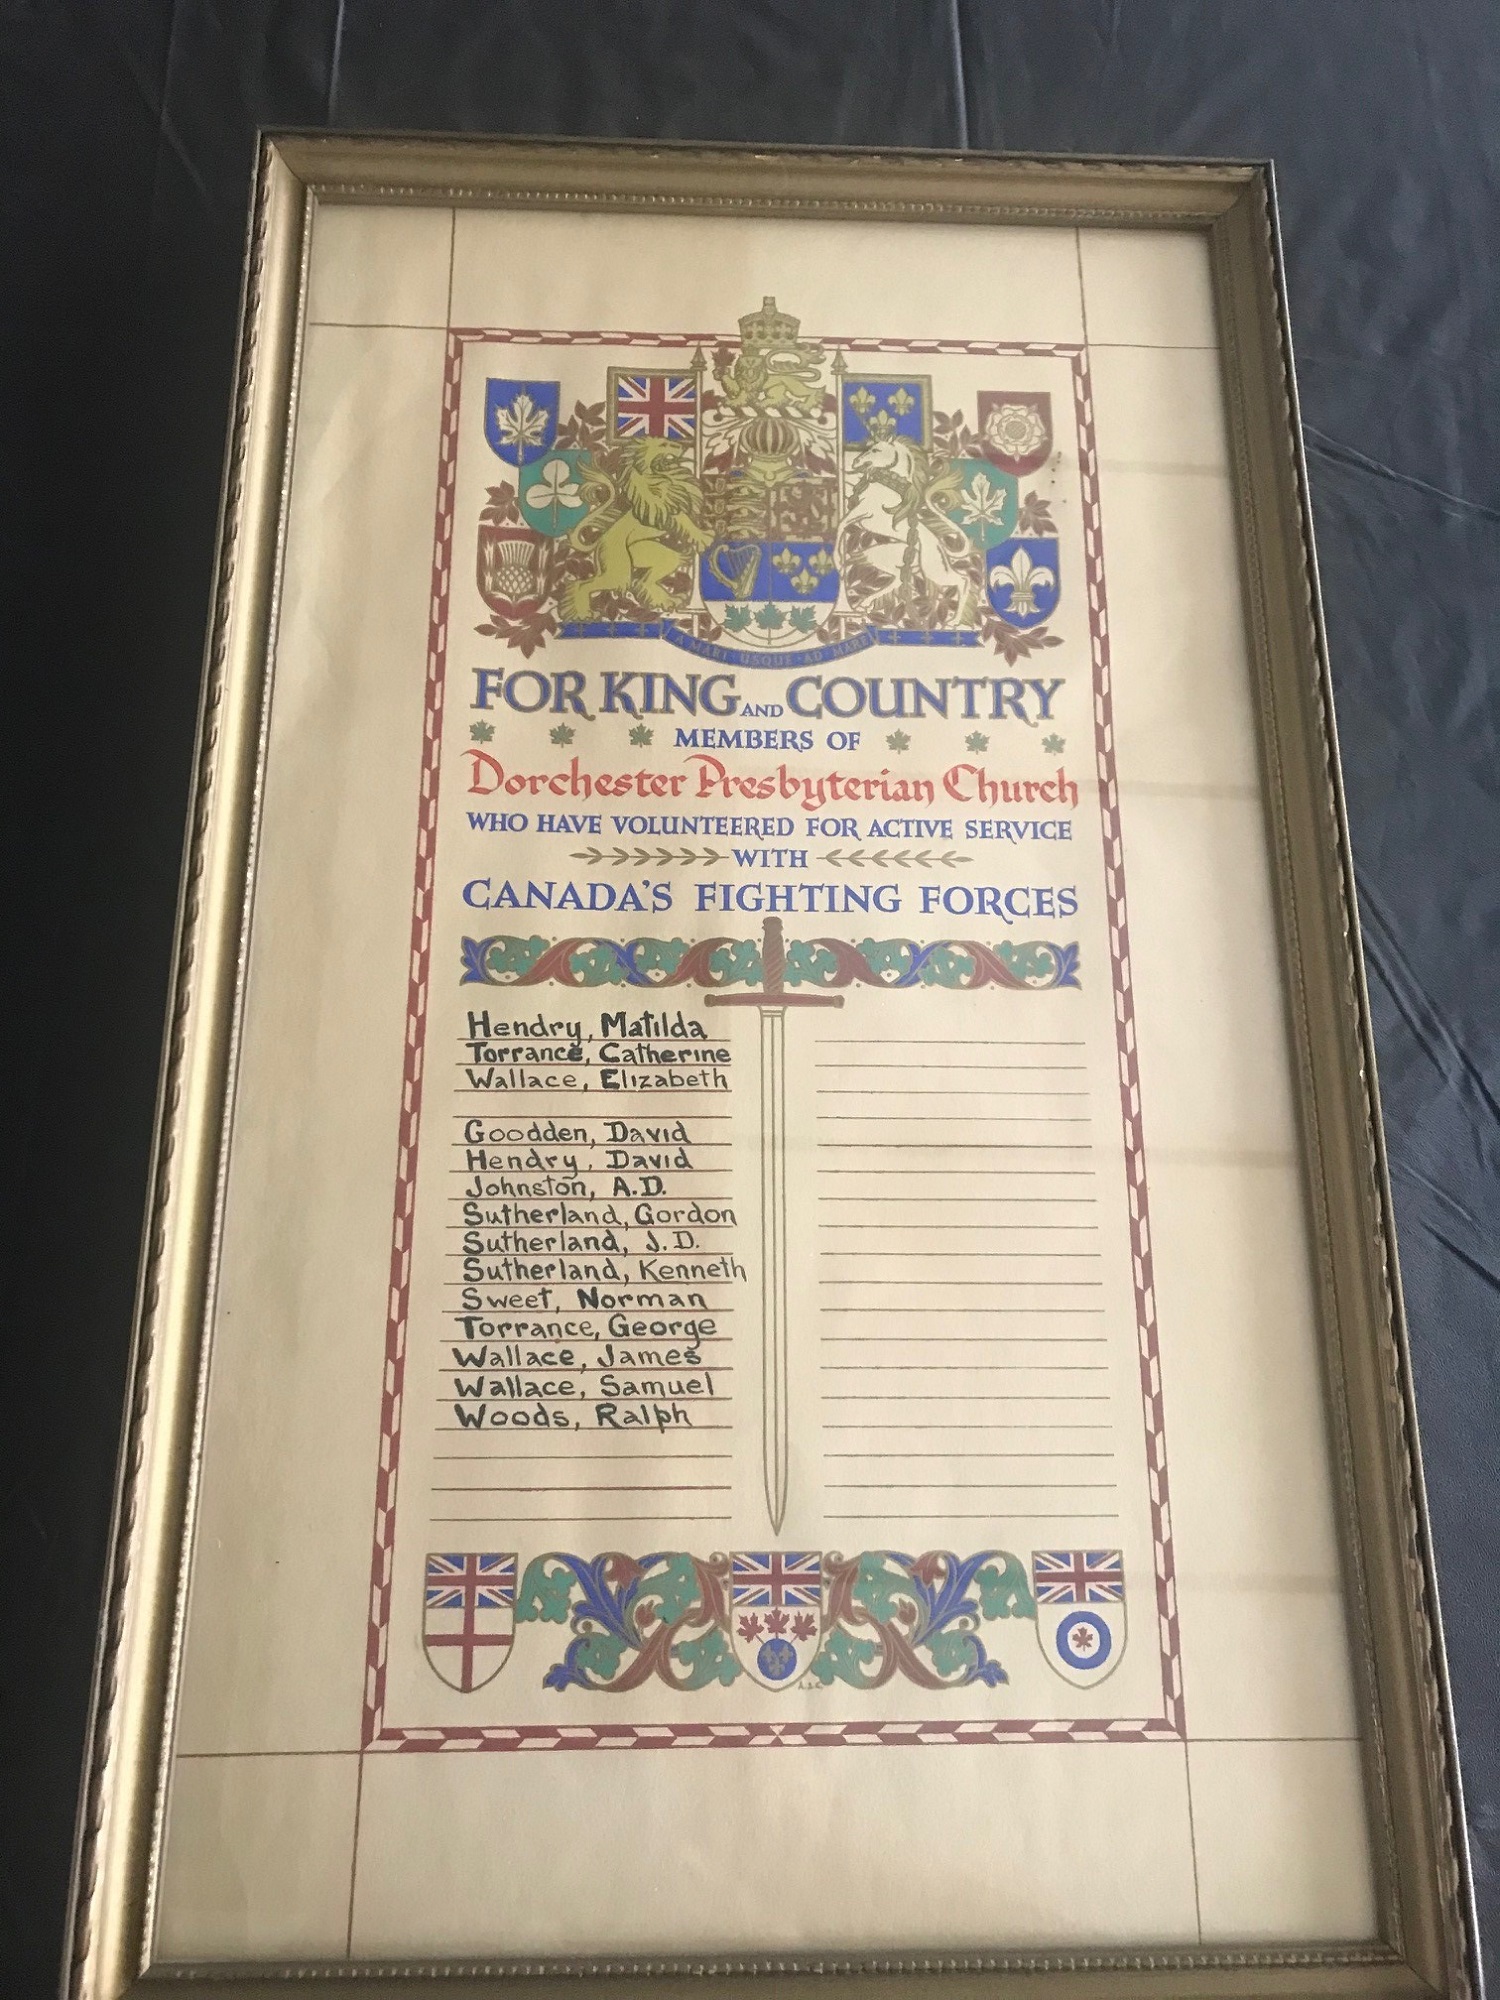 A MARI · USQUE · AD MARE
FOR KING AND COUNTRY
MEMBERS OF
Dorchester Presbyterian Church
WHO HAVE VOLUNTEERED FOR ACTIVE SERVICE
WITH
CANADA'S FIGHTING FORCES
Hendry, Matilda
Torrance, Catherine
Wallace, Elizabeth
Goodden, David
Hendry, David
Johnston, A.D.
Sutherland, Gordon
Sutherland, J.D.
Sutherland, Kenneth
Sweet, Norman
Torrance, George
Wallace, James
Wallace, Samuel
Woods, Ralph